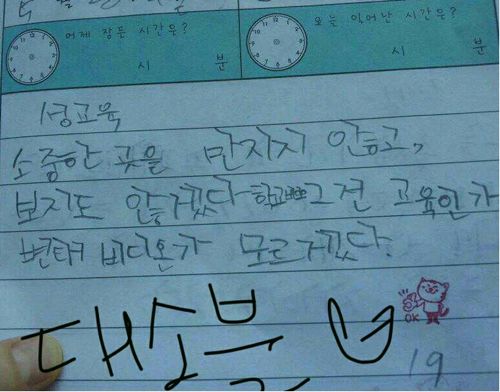 어제 잠든 시간은?
오늘 일어난 시간은?
시 분
시 분
성교육
소중한 곳을 만지지 안하고,
보지도 안겠다 그건 교육인가
변태 비디온가 모르겠다.
OK
19